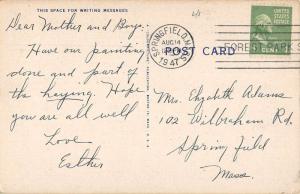 THIS SPACE FOR WRITING MESSAGES
Dear Mother and Boys:
Have our painting
done and part of
the haying. Hope
you are all well
Love
Esther
SPRINGFIELD
AUG 14
1947
POST CARD
UNITED STATES
POSTAGE
FOREST PARK
Mrs. Elizabeth Adams
102 Wilbraham Rd.
Springfield
Mass.